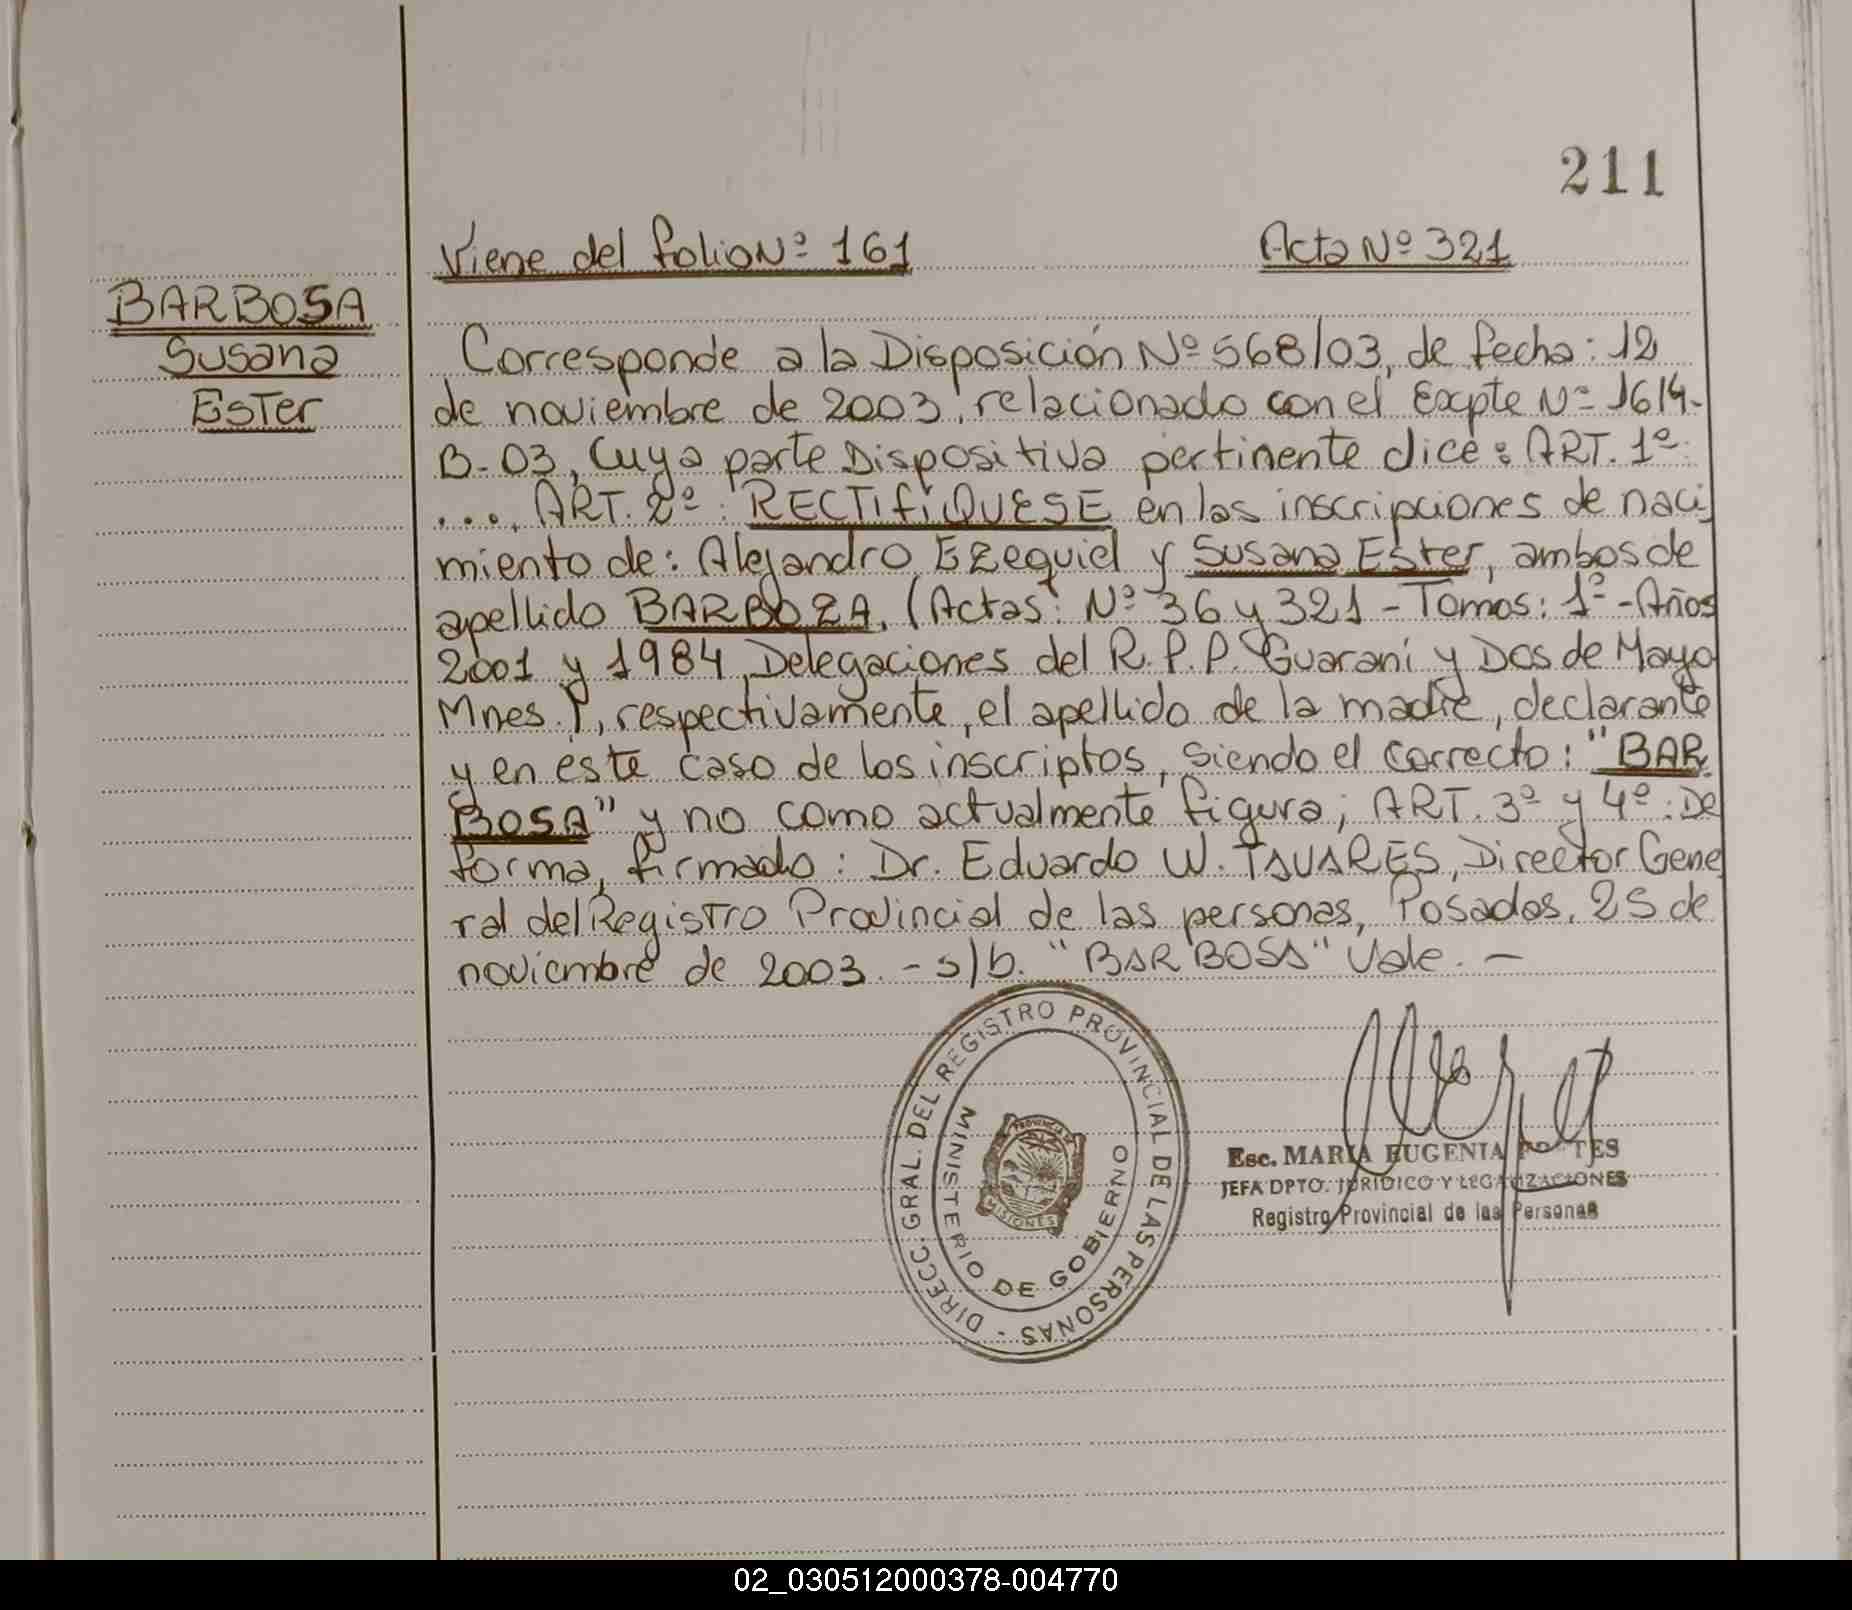 211
Viene del folio Nº 161 Acta Nº 321
BARBOSA
Susana
Ester
Corresponde a la Disposición Nº 568/03, de fecha: 12
de noviembre de 2003, relacionado con el Expte Nº 1614-
B-03, Cuya parte Dispositiva pertinente dice: ART. 1º:
...., ART. 2º: RECTIFIQUESE en las inscripciones de naci
miento de: Alejandro Ezequiel y Susana Ester, ambos de
apellido BARBOZA, (Actas: Nº 36 y 321 - Tomos: 1º - Años
2001 y 1984, Delegaciones del R.P.P. Guaraní y Dos de Mayo
Mnes.), respectivamente, el apellido de la madre, declarante
y en este caso de los inscriptos, siendo el correcto: "BAR
BOSA" y no como actualmente figura; ART. 3º y 4º: De
forma, firmado: Dr. Eduardo W. TAVARES, Director Gene
ral del Registro Provincial de las personas, Posadas, 25 de
noviembre de 2003. - s/b. "BARBOSA" Vale. -
DIRECC. GRAL. DEL REGISTRO PROVINCIAL DE LAS PERSONAS -
MINISTERIO DE GOBIERNO
PROVINCIA
MISIONES
Esc. MARIA EUGENIA
JEFA DPTO. JURIDICO Y LEGALIZACIONES
Registro Provincial de las Personas
02_030512000378-004770